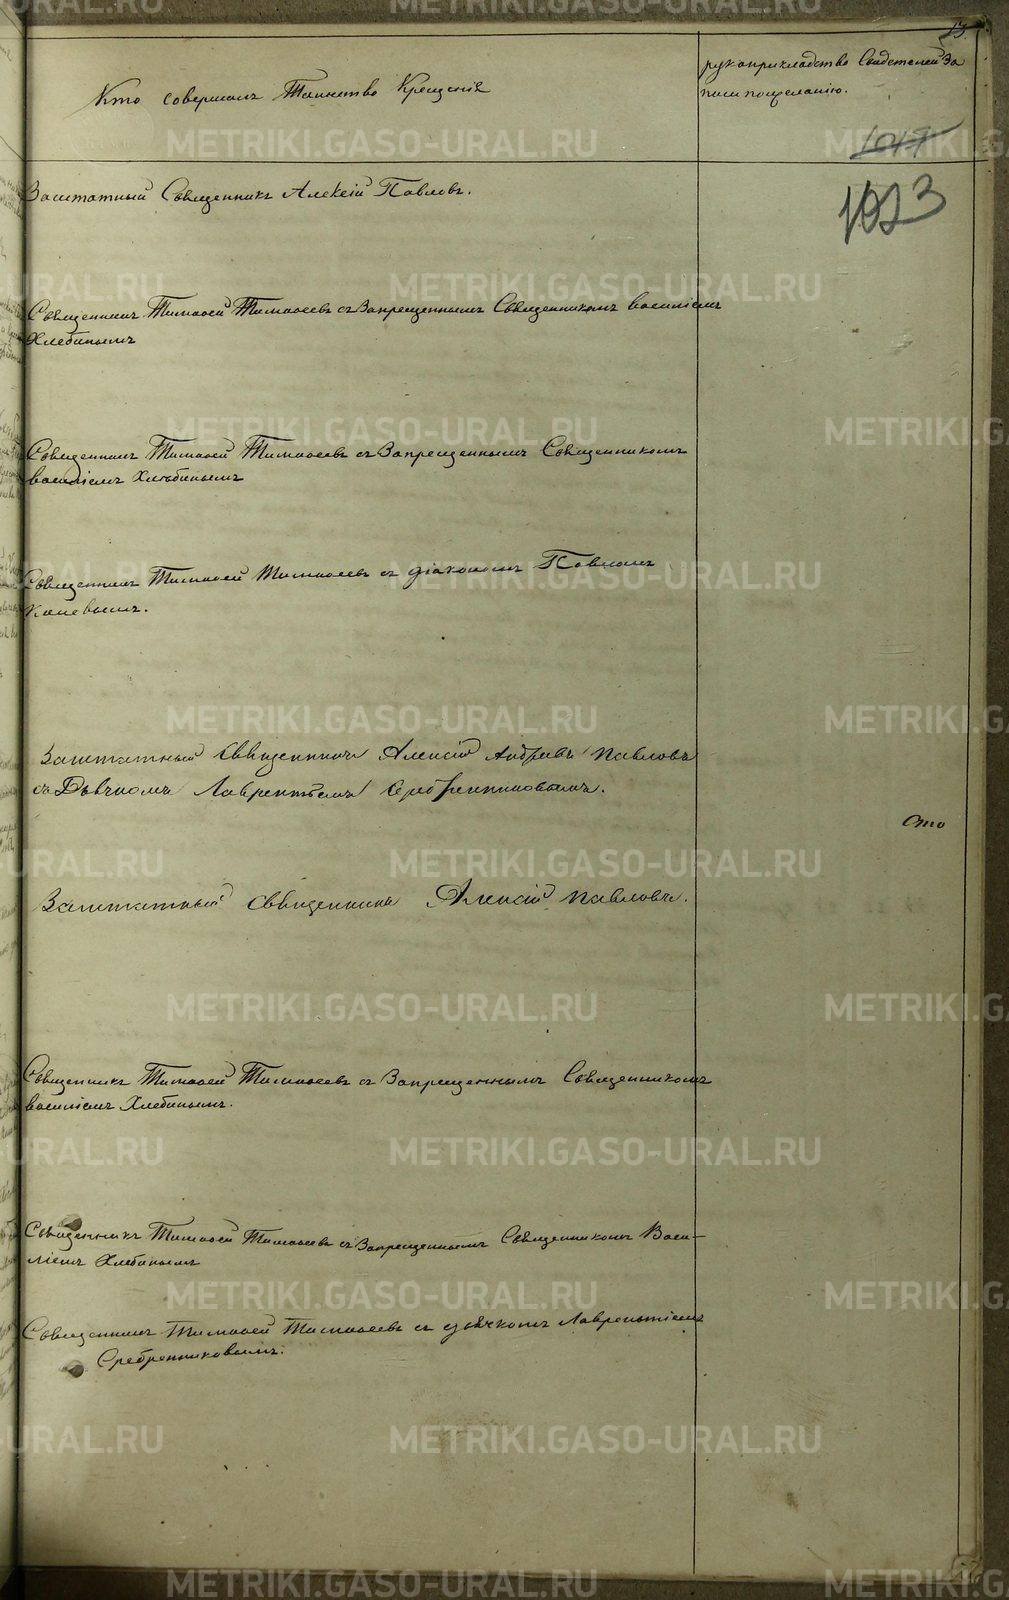 13.
Кто совершалъ Таинство Крещенія
рукоприкладство Свидетелей За
писи по желанію.
1017
1023
Заштатный Священникъ Алексій Павловъ.
Священникъ Тимофей Тимофеевъ съ Запрещеннымъ Священникомъ Василіемъ
Хлебинымъ
Священникъ Тимофей Тимофеевъ съ Запрещеннымъ Священникомъ
Василіемъ Хлебинымъ
Священникъ Тимофей Тимофеевъ съ діакономъ Павломъ
Заштатный Священникъ Алексій Андреевъ Павловъ
съ Дьячкомъ Лаврентьемъ Серебренниковымъ.
Сто
Заштатный Священникъ Алексій Павловъ.
Священникъ Тимофей Тимофеевъ съ Запрещеннымъ Священникомъ
Василіемъ Хлебинымъ.
Священникъ Тимофей Тимофеевъ съ Запрещеннымъ Священникомъ Васи-
ліемъ Хлебинымъ
Священникъ Тимофей Тимофеевъ съ дьячкомъ Лаврентіемъ
Сребренниковымъ.
METRIKI.GASO-URAL.RU